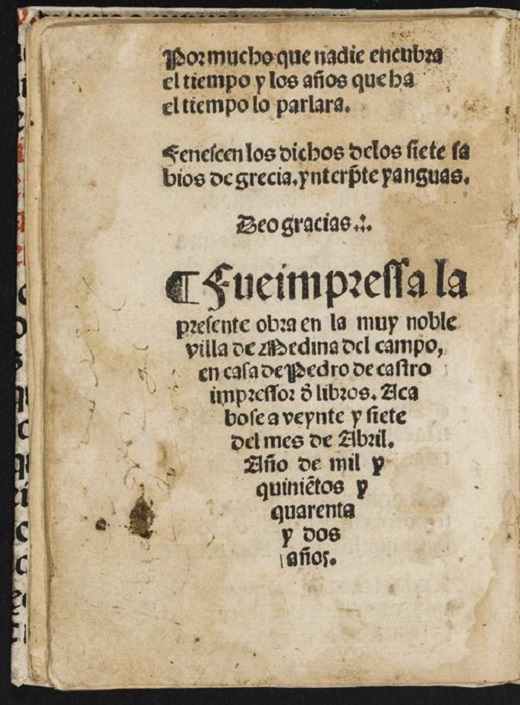 Por mucho que nadie encubra
el tiempo y los años que ha
el tiempo lo parlara.
Fenescen los dichos delos siete sa
bios de grecia. ynterp̃te yanguas.
Deo gracias.:.
¶ Fue impressa la
presente obra en la muy noble
villa de Medina del campo,
en casa de Pedro de castro
impressor đ libros. Aca
bose a veynte y siete
del mes de Abril.
Año de mil y
quiniẽtos y
quarenta
y dos
años.